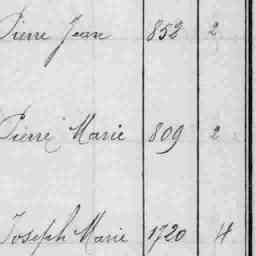 Pierre Jean 852 2
Pierre Marie 809 2
Joseph Marie 1720 4